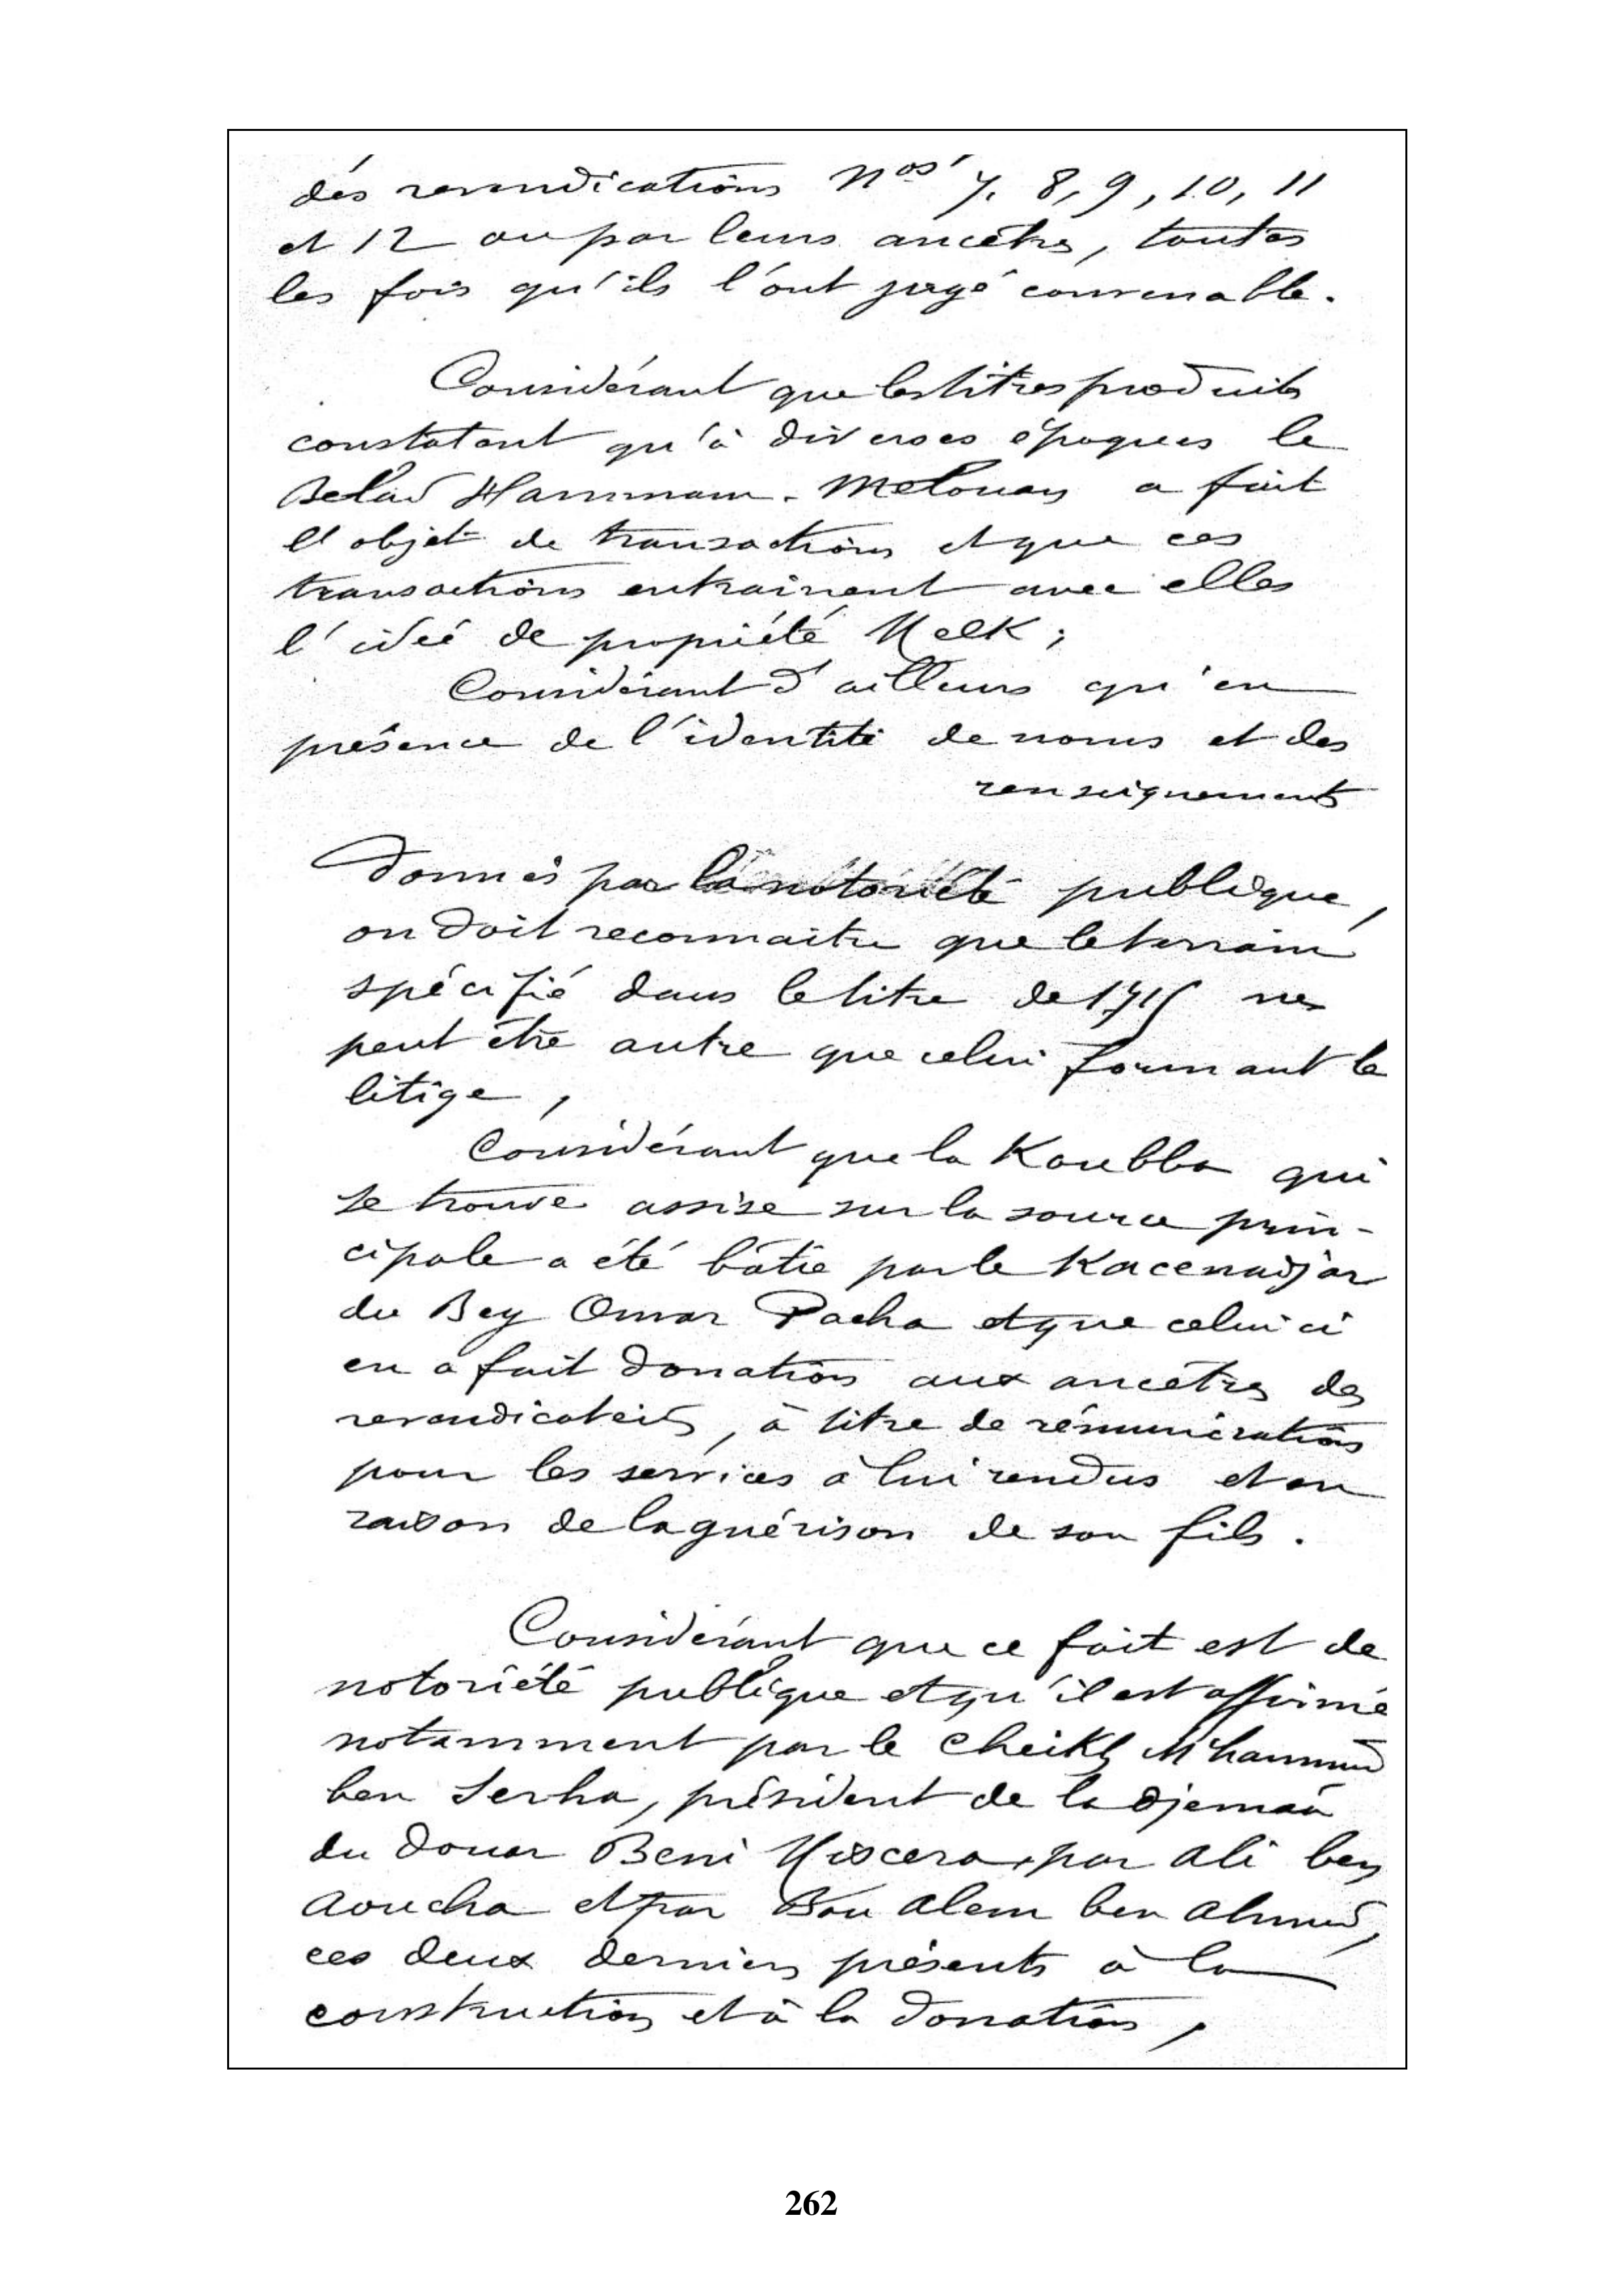 des revendications Nos 7, 8, 9, 10, 11
et 12 ou par leurs ancêtres, toutes
les fois qu'ils l'ont jugé convenable.
Considérant que les titres produits
constatent qu'à diverses époques le
Belad Hammam-Melouan a fait
l'objet de transactions et que ces
transactions entrainent avec elles
l'idée de propriété Melk ;
Considérant d'ailleurs qu'en
présence de l'identité de noms et des
renseignements
donnés par la notoriété publique,
on doit reconnaitre que le terrain
spécifié dans le titre de 1715 ne
peut être autre que celui formant le
litige,
Considérant que la Koubba qui
se trouve assise sur la source prin-
cipale a été bâtie par le Kacenadjar
du Bey Omar Pacha et que celui ci
en a fait donation aux ancêtres des
revendicateurs, à titre de rémunération
pour les services à lui rendus et en
raison de la guérison de son fils.
Considérant que ce fait est de
notoriété publique et qu'il est affirmé
notamment par le Cheikh M'hammed
ben Serha, président de la djemaâ
du douar Beni Miscera, par Ali ben
Aoucha et par Bou Alem ben Ahmed,
ces deux derniers présents à la
construction et à la donation,
262